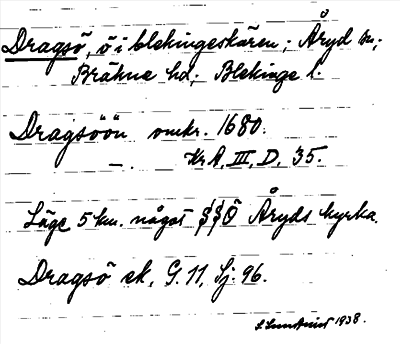 Dragsö, ö i blekingeskären; Åryd sn;
Bräkne hd; Blekinge l.
Dragsöön omkr. 1680.
—. Kr.A, III, D, 35.
Läge 5 km. något S Ö Åryds kyrka.
Dragsö ek, G. 11, Sj. 96.
1938.